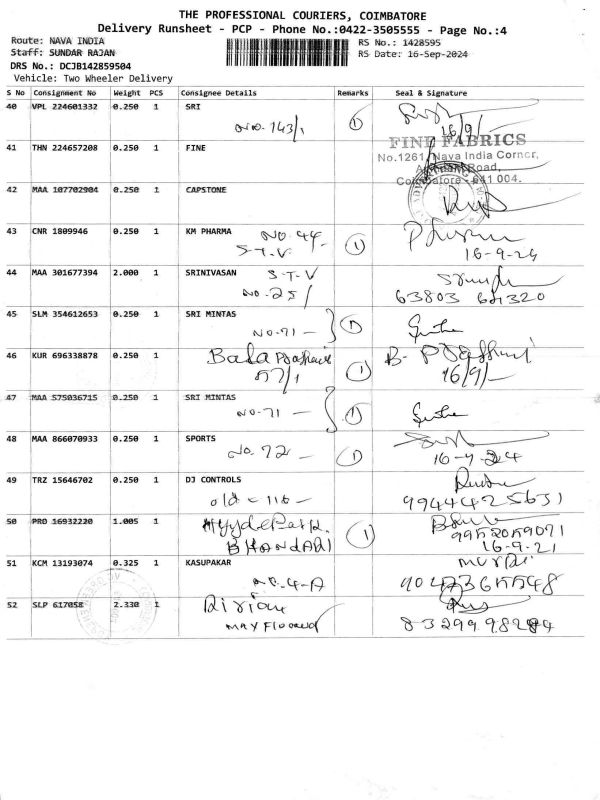 THE PROFESSIONAL COURIERS, COIMBATORE
Delivery Runsheet - PCP - Phone No.:0422-3505555 - Page No.:4
Route: NAVA INDIA RS No.: 1428595
Staff: SUNDAR RAJAN RS Date: 16-Sep-2024
DRS No.: DCJB142859504
Vehicle: Two Wheeler Delivery
S No Consignment No Weight PCS Consignee Details Remarks Seal & Signature
40 VPL 224601332 0.250 1 SRI
No. 143/1 1 16/9/
FINE FABRICS
41 THN 224657208 0.250 1 FINE
No.1261, Nava India Corner,
Road,
Coimbatore - 641 004.
42 MAA 107702904 0.250 1 CAPSTONE
43 CNR 1809946 0.250 1 KM PHARMA No. 44-
S-T-V. 1 16-9-24
44 MAA 301677394 2.000 1 SRINIVASAN S-T-V
No. 25/
45 SLM 354612653 0.250 1 SRI MINTAS
No. 71 - 1
46 KUR 696338878 0.250 1 Bala
57/1 1 16/9/-
47 MAA 575036715 0.250 1 SRI MINTAS
No-71 - 1
48 MAA 866070933 0.250 1 SPORTS
No. 72 - 1
49 TRZ 15646702 0.250 1 DJ CONTROLS
old - 118 - 9944425631
50 PRO 16932220 1.005 1 Hyde Park
BHANDARI 1 16-9-21
51 KCM 13193074 0.325 1 KASUPAKAR
No. 4-A
52 SLP 617058 2.330 1